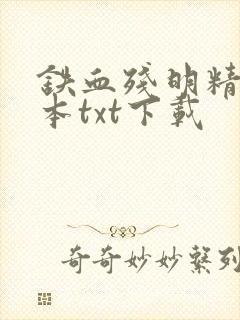 鉄血殘明精
本txt下載
奇奇妙妙繫列